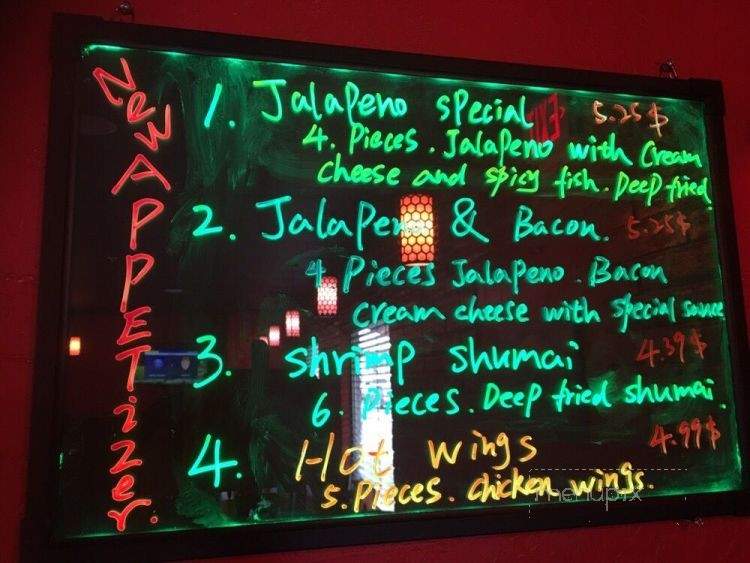 New APPETizer.
1. Jalapeno special 5.25$
4. Pieces. Jalapeno with Cream
cheese and spicy fish. Deep fried
2. Jalapeno & Bacon. 5.25$
4 Pieces Jalapeno. Bacon
cream cheese with special sauce
3. shrimp shumai 4.39$
6. Pieces. Deep fried shumai.
4. Hot wings 4.99$
5. Pieces. chicken wings.
menupix